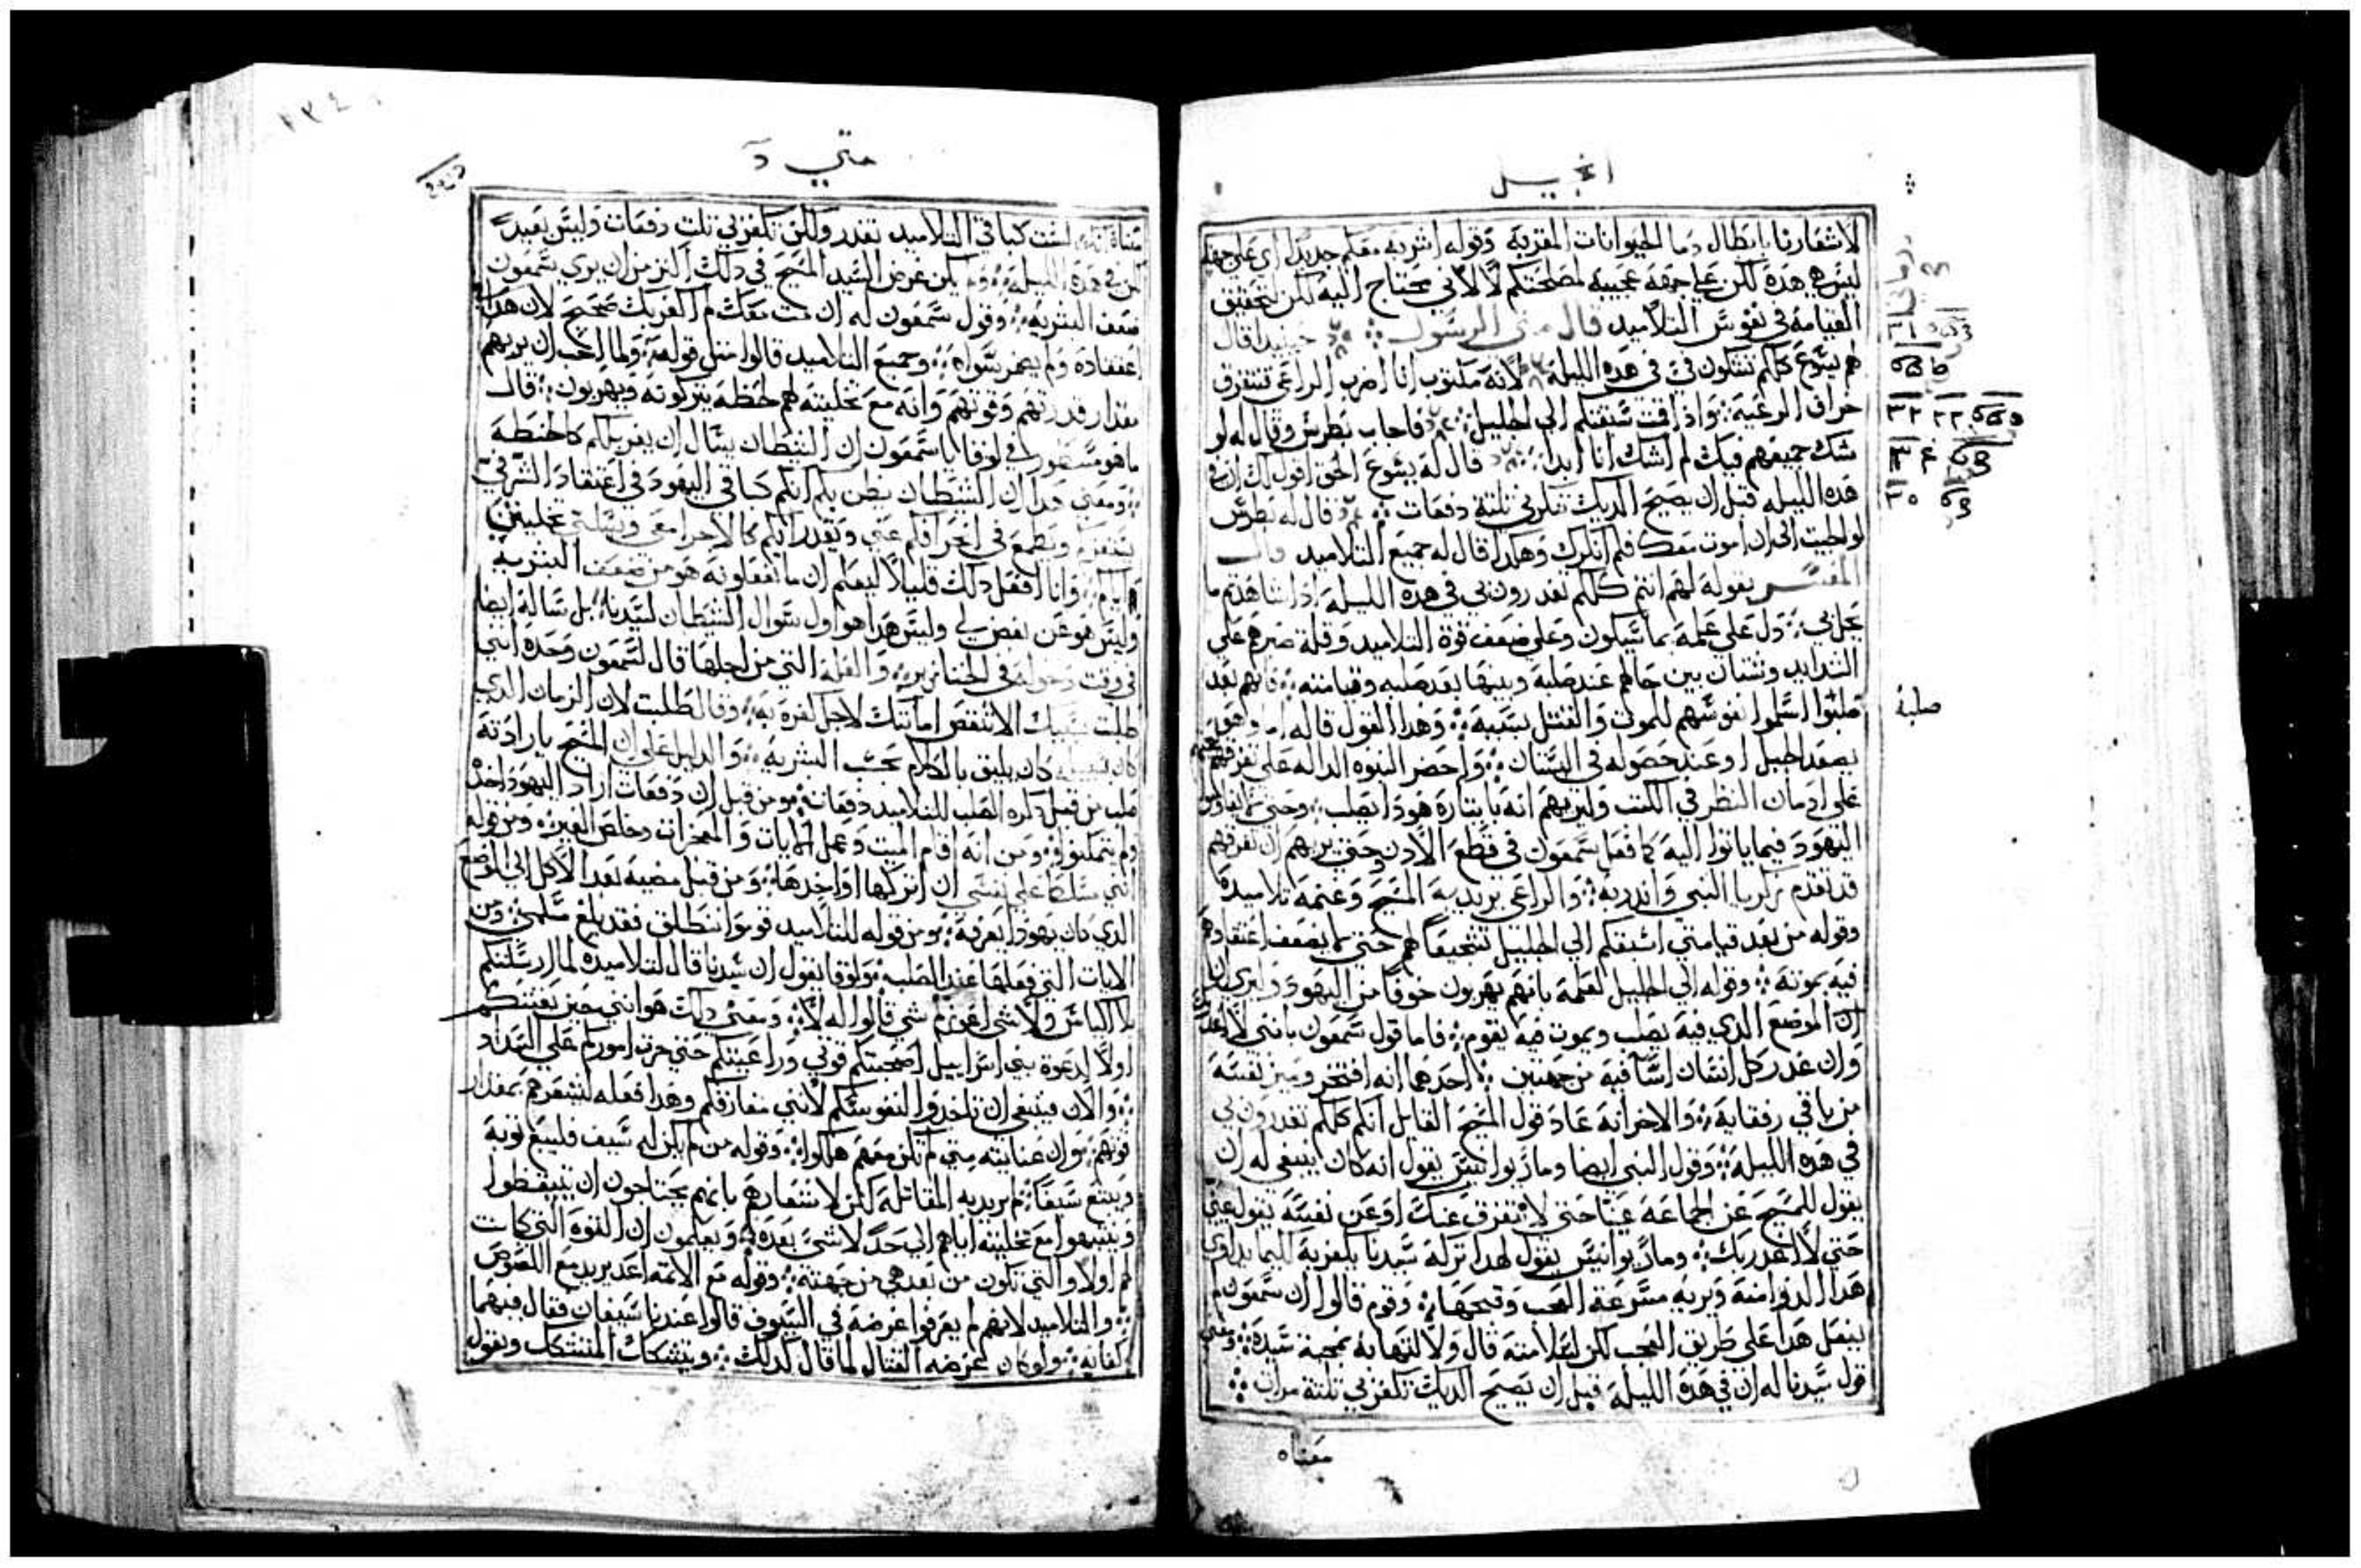 انجيل
لاشعارنا بابطال دما الحيوانات المقربه وقوله اشربه معكم جديدًا اي على جهة
ليس هي هده لكن على جهة عجيبه لمصلحتكم لا لاني محتاج اليه لكن لتحقيق
القيامه في نفوس التلاميد قال متى الرسول حينيدا قال
لهم يسوع كلكم تشكون في في هده الليلة لانه مكتوب انا اضرب الراعي تتفرق
خراف الرعية واذا قمت سبقتكم الى الجليل فاجاب بطرس وقال له لو
شك جميعهم فيك لم اشك انا ابدا قال له يسوع الحق اقول لك ان في
هده الليله قبل ان يصيح الديك تنكرني تلتة دفعات قال له بطرس
لو الجيت الى ان اموت معك فلم انكرك وهكدا قال له جميع التلاميد قال
المفسر بقوله لهم انتم كلكم تغدرون بي في هده الليلة اذا شاهدتم ما
يحل بي دل على علمه بما سيكون وعلى ضعف قوة التلاميد وقلة صبرهم على
الشدايد وشتان بين حالهم عند صلبه وبينها بعد صلبه وقيامته فانهم بعد
صلبوا اسلموا نفوسهم للموت والقتل بسببه وهدا القول قاله اما وهو
يصعد الجبل او عند حصوله في البستان واحضر النبوه الداله على تفرقهم
على ادمان النظر في الكتب وليريهم انه بايتاره هودا يصلب وحتى لا يقاوموا
اليهود فيما ياتوا اليه كما فعل سمعون في قطع الادن وحتى يريهم ان تفرقهم
قد تقدم زكريا النبي واندر به والراعي يريد به المسيح وغنمه تلاميده
وقوله من بعد قيامتي اسبقكم الى الجليل تشجيعًا لهم حتى لا يضعف اعتقادهم
فيه بموته وقوله الى الجليل لعلمه بانهم يهربون خوفًا من اليهود وليري ان
ان الموضع الدي فيه يصلب ويموت فيه يقوم فاما قول سمعون بانني لا اغدر
وان غدر كل انسان اسا فيه من جهتين احدهما انه افتخر وميز نفسه
من باقي رفقايه والاخر انه عاد قول المسيح القايل انكم كلكم تغدرون بي
في هده الليله وقول النبي ايضا ومار يوانيس يقول انه كان ينبغي له ان
يقول للمسيح عن الجماعه عينا حتى لا نتفرق عنك او عن نفسه تقول عني
حتى لا اغدر بك ومار يوانيس يقول لهدا تركه سيدنا يكفر به لكيما يداوي
هدا الدوا منه ويريه مسرعة العجب وقبحها وقوم قالوا ان سمعون لم
يفعل هدا على طريق العجب لكن لسلامته قال ولالتهابه بمحبة سيده ومعنى
قول سيدنا له ان في هده الليلة قبل ان يصيح الديك تكفر بي تلتة مرات
معناه
صلبة
متي
لست كباقي التلاميد تغدر ولكن تكفر بي تلت دفعات وليس بعيدًا
لكن في هده الليلة ولم يكن غرض السيد المسيح في دلك اكتر من ان يري سمعون
ضعف البشرية وقول سمعون له ان مت معك لم اكفر بك صحيح لان هدا
اعتقاده ولم يضمر سواه وجميع التلاميد قالوا متل قوله ولما احب ان يريهم
مقدار قدرتهم وقوتهم وانه مع تخليته لهم لحظه يتركونه ويهربون قال
ما هو مسطور في لوقا يا سمعون ان الشيطان يسال ان يغربلكم كالحنطه
ومعنى هدا ان الشيطان يظن بكم انكم كباقي اليهود في اعتقاد الشر في
ويطمع في انحرافكم عني ويقدر انكم كالاحرا معي ويسلني تخليتن
اياكم وانا افعل دلك قليلًا ليعلم ان ما تفعلونه هو من ضعف البشرية
وليس هو عن بغض لي وليس هدا هو اول سوال الشيطان لسيدنا بل ساله ايضا
في وقت دخوله في الخنازير والعلة التي من اجلها قال لسمعون وحده انني
طلبت بسببك الا تنقص امانتك لاجل كفره به وقال طلبت لان الزمان الدي
كان يليق بالكلام بحسب البشرية والدليل على ان المسيح بارادته
صلب من قبل دكره الصلب للتلاميد دفعات ومن قبل ان دفعات اراد اليهود اخده
ولم يتمكنوا ومن انه اقام الميت وعمل الايات والمعجزات وخلص الغير ومن قوله
انني مسلط على نفسي ان اتركها او اخدها ومن قبل مضيه بعد الاكل الى الموضع
الدي كان يهودا يعرفه ومن قوله للتلاميد قوموا ننطلق فقد بلغ مسلمي ومن
الايات التي فعلها عند الصلبه ولوقا يقول ان سيدنا قال لتلاميده لما ارسلتكم
بلا اكياس ولا شي اعوزكم شي قالوا له لا ومعنى دلك هو انني حين بعتتكم
اولًا لدعوة بني اسراييل اصحبتكم قوتي وراعيتكم حتى جرت اموركم على السداد
والان فينبغي ان تاخدوا لنفوسكم لانني مفارقكم وهدا فعله ليشعرهم بمقدار
قوتهم وان عنايته متى لم تكن معهم هلكوا وقوله من لم يكن له سيف فليبع توبه
ويبتاع سيفًا لم يريد به المقاتلة لكن لاشعارهم بانهم يحتاجون ان يتيقظوا
ويتنبهوا مع تخليته اياهم الى حد لاشي بعده ويعلمون ان القوه التي كانت
لهم اولًا والتي تكون من بعد هي من جهته وقوله مع الاتمه اعد يريد مع اللصوص
والتلاميد لانهم لم يعرفوا غرضه في السيوف قالوا عندنا سيفان فقال فيهما
كفايه ولو كان غرضه القتال لما قال كدلك ويتشكك المتشكك ويقول